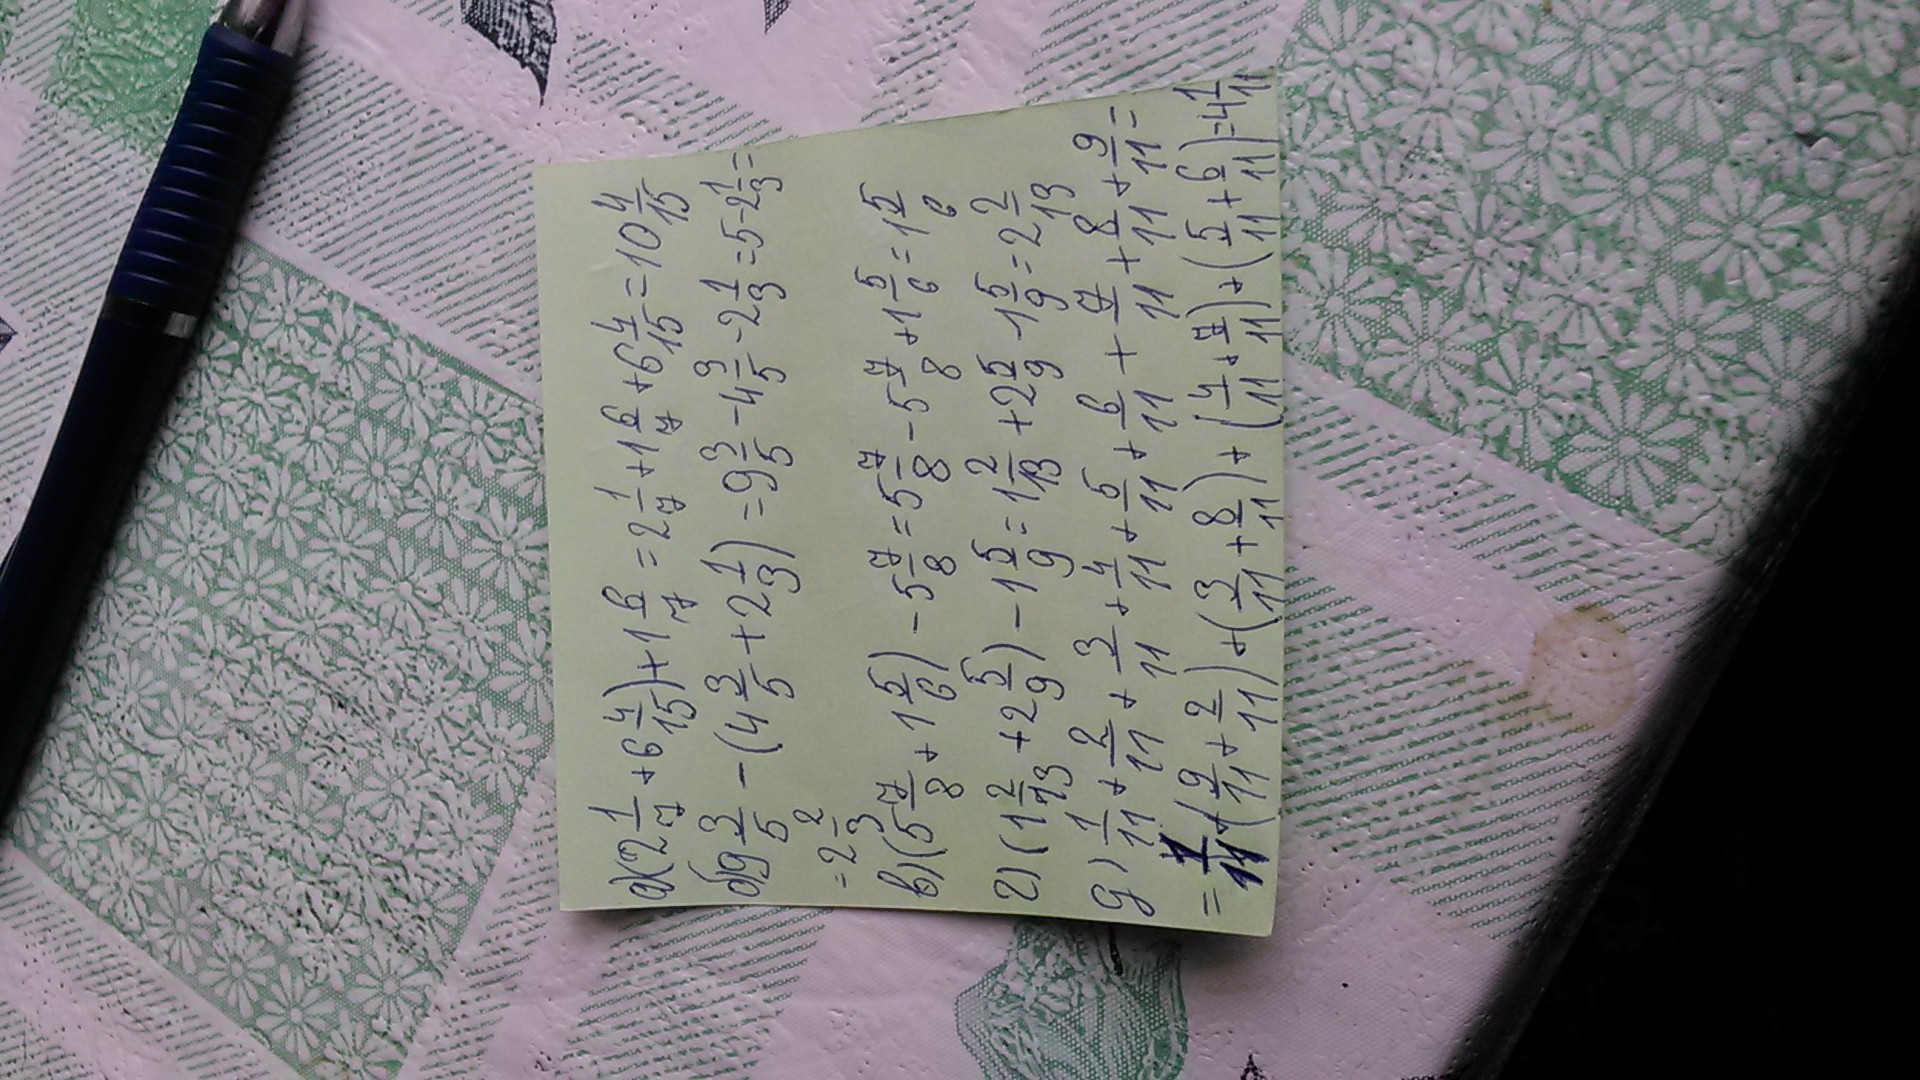 а)(2 1/7 + 6 4/15) + 1 6/7 = 2 1/7 + 1 6/7 + 6 4/15 = 10 4/15
б)9 3/5 - (4 3/5 + 2 1/3) = 9 3/5 - 4 3/5 - 2 1/3 = 5 - 2 1/3 =
= 2 2/3
в)(5 7/8 + 1 5/6) - 5 7/8 = 5 7/8 - 5 7/8 + 1 5/6 = 1 5/6
г)(1 2/13 + 2 5/9) - 1 5/9 = 1 2/13 + 2 5/9 - 1 5/9 = 2 2/13
д) 1/11 + 2/11 + 3/11 + 4/11 + 5/11 + 6/11 + 7/11 + 8/11 + 9/11 =
= 1/11 + (9/11 + 2/11) + (3/11 + 8/11) + (4/11 + 7/11) + (5/11 + 6/11) = 4 1/11